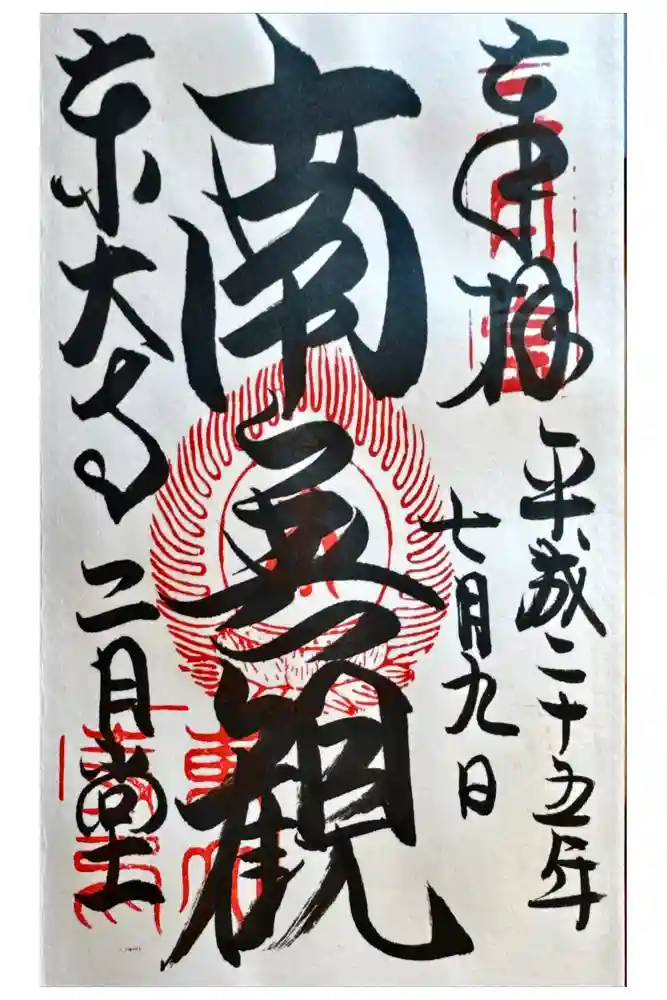 奉拝
平成二十五年
七月九日
南無観
東大寺 二月堂